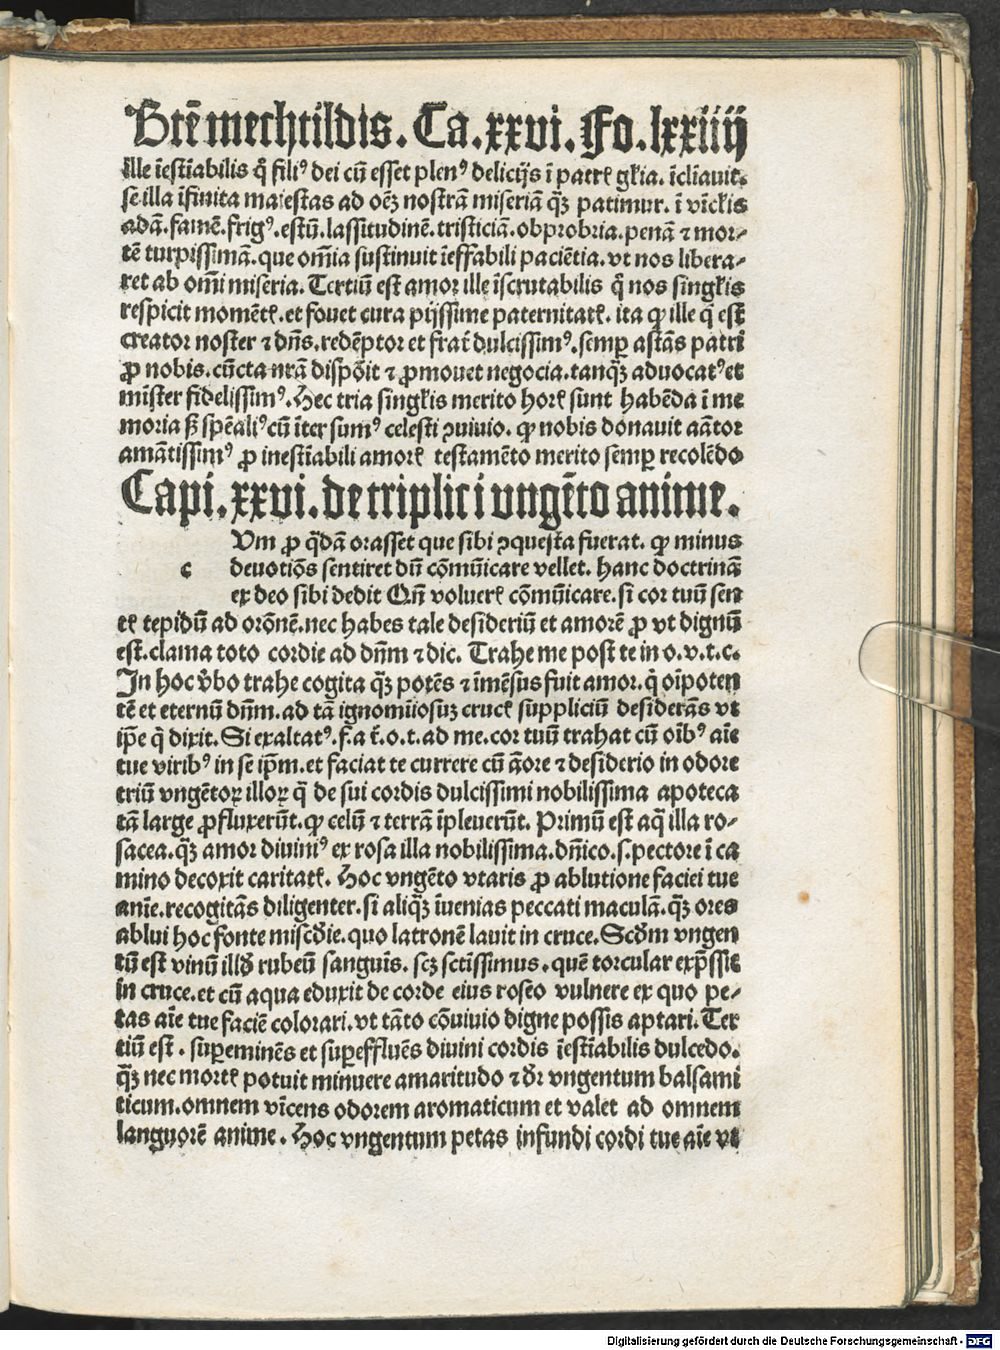 Btē mechtildis. Ca. xxvi. Fo. lxxiiij
ille īestīabilis q̄ filiꝰ dei cū esset plenꝰ delicijs ī patrꝭ gl̄ia. īclīauit
se illa īfinita maiestas ad oēꝫ nostrā miseriā q̄ꝫ patimur. ī vīcl̄is
adā. famē. frigꝰ. estū. lassitudinē. tristiciā. obprobria. penā ⁊ mor-
tē turpissimā. que om̄ia sustinuit īeffabili paciētia. vt nos libera-
ret ab om̄i miseria. Tertiū est amor ille īscrutabilis q̄ nos singl̄is
respicit momētꝭ. et fouet cura pijssime paternitatꝭ. ita ꝙ ille q̄ est
creator noster ⁊ dn̄s. redēptor et frat̄ dulcissimꝰ. semꝑ astās patri
ꝓ nobis. cūcta nrā dispōit ⁊ ꝓmouet negocia. tanq̄ꝫ aduocatꝰ et
mīster fidelissimꝰ. Hec tria singl̄is merito horꝭ sunt habēda ī me
moria ß spēaliꝰ cū īter sumꝰ celesti ꝯuiuio. ꝙ nobis donauit aātor
amātissimꝰ ꝓ inestīabili amorꝭ testamēto merito semꝑ recolēdo
Capi. xxvi. de triplici vngēto anime.
Vm ꝓ q̄dā orasset que sibi ꝯquesta fuerat. ꝙ minus
c deuotiōs sentiret dū cōmūicare vellet. hanc doctrinā
ex deo sibi dedit Qn̄ voluerꝭ cōmūicare. si cor tuū sen
tꝭ tepidū ad orōnē. nec habes tale desideriū et amorē ꝓ vt dignū
est. clama toto cordie ad dn̄m ⁊ dic. Trahe me post te in o. v. t. c.
In hoc v̄bo trahe cogita q̄ꝫ potēs ⁊ īmēsus fuit amor. q̄ oīpoten
tē et eternū dn̄m. ad tā ignomiiosuꝫ crucꝭ suppliciū desiderās vt
ip̄e q̄ dixit. Si exaltatꝰ. f. a t̄. o. t. ad me. cor tuū trahat cū oībꝰ aīe
tue viribꝰ in se ip̄m. et faciat te currere cū āore ⁊ desiderio in odore
triū vngētoꝝ illoꝝ q̄ de sui cordis dulcissimi nobilissima apoteca
tā large ꝓfluxerūt. ꝙ celū ⁊ terrā īpleuerūt. Primū est aq̄ illa ro-
sacea. q̄ꝫ amor diuiniꝰ ex rosa illa nobilissima. dn̄ico. s. pectore ī ca
mino decoxit caritatꝭ. Hoc vngēto vtaris ꝓ ablutione faciei tue
anīe. recogitās diligenter. si aliq̄ꝫ īuenias peccati maculā. q̄ꝫ ores
ablui hoc fonte misc̄die. quo latronē lauit in cruce. Scd̄m vngen
tū est vinū illd̄ rubeū sanguīs. scꝫ sctīssimus. quē torcular exp̄ssit
in cruce. et cū aqua eduxit de corde eius roseo vulnere ex quo pe-
tas aīe tue faciē colorari. vt tāto cōuiuio digne possis aptari. Ter
tiū est. suꝑeminēs et suꝑeffluēs diuini cordis īestīabilis dulcedo.
q̄ꝫ nec mortꝭ potuit minuere amaritudo ⁊ dr̄ vngentum balsami
ticum. omnem vīcens odorem aromaticum et valet ad omnem
languorē anime. Hoc vngentum petas infundi cordi tue aīe vt
Digitalisierung gefördert durch die Deutsche Forschungsgemeinschaft - DFG